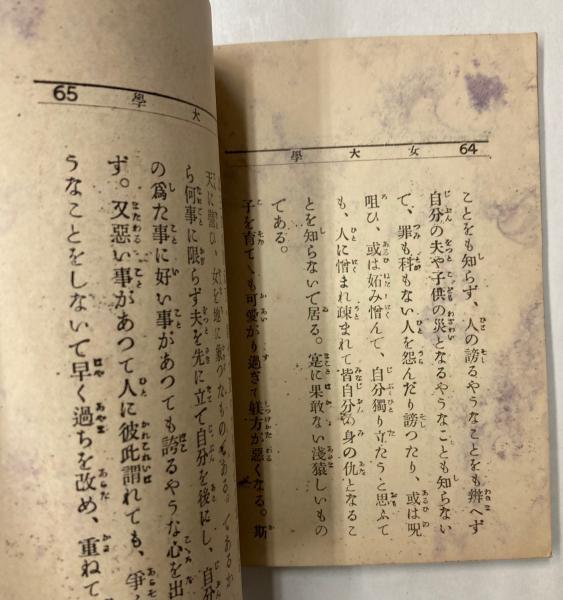 64
女大學
ことをも知らず、人の謗るやうなことをも辨へず
自分の夫や子供の災となるやうなことも知らない
て、罪も科もない人を怨んだり謗つたり、或は呪
咀ひ、或は妬み憎んで、自分獨り立たうと思ふて
も、人に憎まれ疎まれて皆自分の身の仇となるこ
とを知らないで居る。寔に果敢ない淺猿しいもの
である。
子を育てゝも可愛がり過ぎて躾方が惡くなる。斯
65
大學
天に喩ひ、女を地に象つたものである。であるか
ら何事に限らず夫を先に立て自分を後にし、自分
の爲た事に好い事があつても誇るやうな心を出
ず。又惡い事があつて人に彼此謂れても、爭
うなことをしないで早く過ちを改め、重ねて